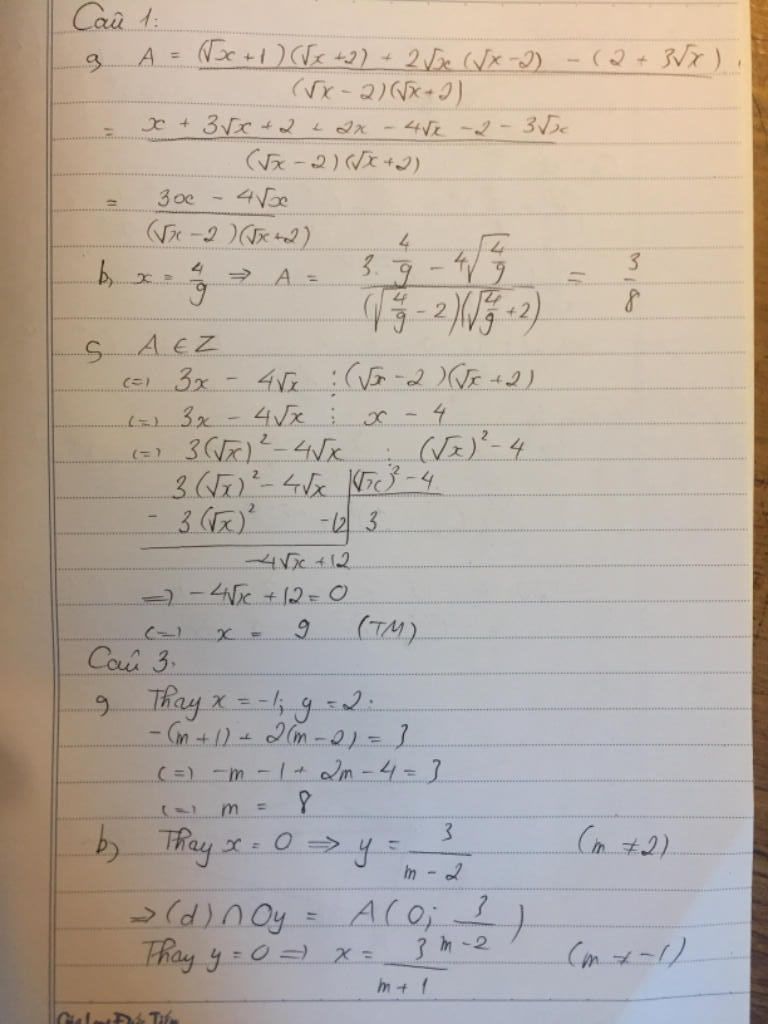 Câu 1:
a, A = ((√x + 1)(√x + 2) + 2√x(√x - 2) - (2 + 3√x)) / ((√x - 2)(√x + 2))
= (x + 3√x + 2 + 2x - 4√x - 2 - 3√x) / ((√x - 2)(√x + 2))
= (3x - 4√x) / ((√x - 2)(√x + 2))
b, x = 4/9 => A = (3.4/9 - 4√(4/9)) / ((√(4/9) - 2)(√(4/9) + 2)) = 3/8
c, A ∈ Z
(=) 3x - 4√x ⋮ (√x - 2)(√x + 2)
(=) 3x - 4√x ⋮ x - 4
(=) 3(√x)² - 4√x ⋮ (√x)² - 4
3(√x)² - 4√x | (√x)² - 4
- 3(√x)² -12 | 3
-4√x + 12
=> -4√x + 12 = 0
(=) x = 9 (TM)
Câu 3.
a, Thay x = -1; y = 2.
-(m + 1) + 2(m - 2) = 3
(=) -m - 1 + 2m - 4 = 3
(=) m = 8
b) Thay x = 0 => y = 3/(m - 2) (m ≠ 2)
=> (d) ∩ Oy = A(0; 3/(m - 2))
Thay y = 0 => x = 3/(m + 1) (m ≠ -1)